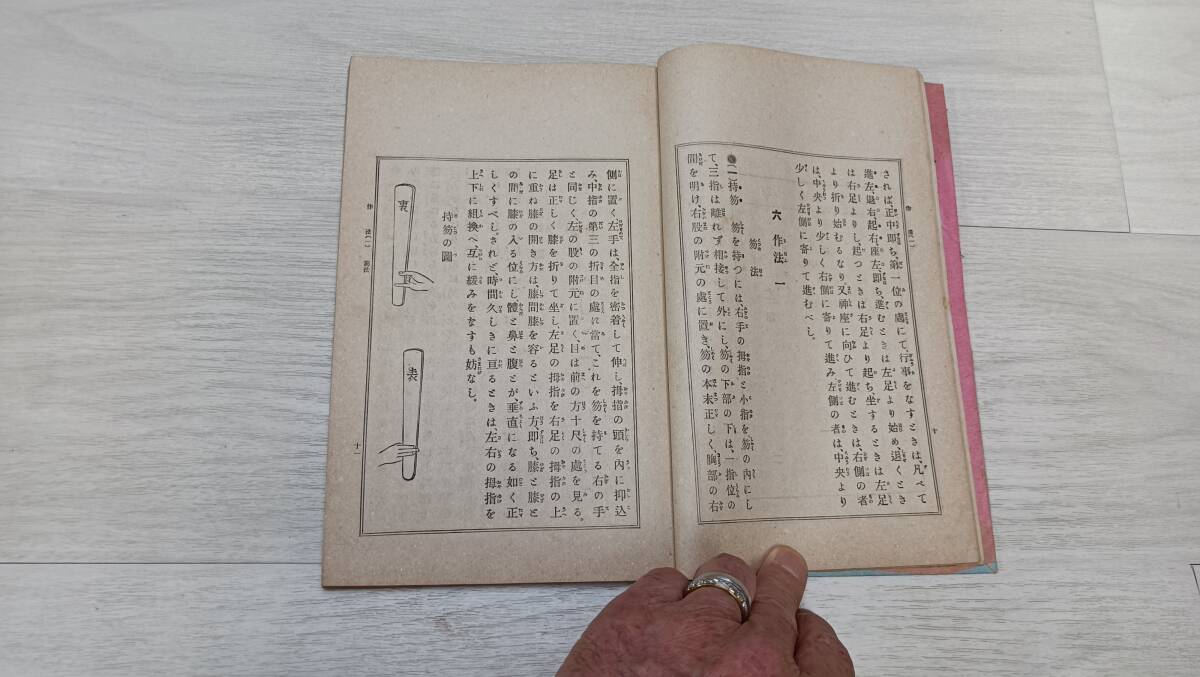 されば、正中即ち、第一位の處にて、行事をなすときは、凡べて
進左、退右、起右、座左、即ち、進むときは左足より始め、退くとき
は右足よりし、起つときは右足より起ち、坐するときは左足
より折り始むるなり又神座に向ひて進むときは、右側の者
は、中央より少しく右側に寄りて進み左側の者は中央より
少しく左側に寄りて進むべし。
六 作法一
笏法
(一)持笏 笏を持つには、右手の拇指と小指を笏の內にし
て、三指は離れず相接して外にし、笏の下部の下は、一指位の
間を明け、右股の附元の處に置き、笏の本末正しく、胸部の右
十
側に置く、左手は、全指を密着して伸し、拇指の頭を內に抑込
み、中指の第三の折目の處に當て、これを笏を持てる右の手
と同じく、左の股の附元に置く、目は前の方十尺の處を見る。
足は正しく膝を折りて坐し、左足の拇指を右足の拇指の上
に重ね膝の開き方は、膝間膝を容るといふ方、即ち、膝と膝と
の間に膝の入る位にし體と鼻と腹とが、垂直になる如く正
しくすべし。されど、時間久しきに亘るときは、左右の拇指を
上下に組換へ、互に緩みをなすも妨なし。
持笏の圖
裏
表
作法(一) 笏法
十一